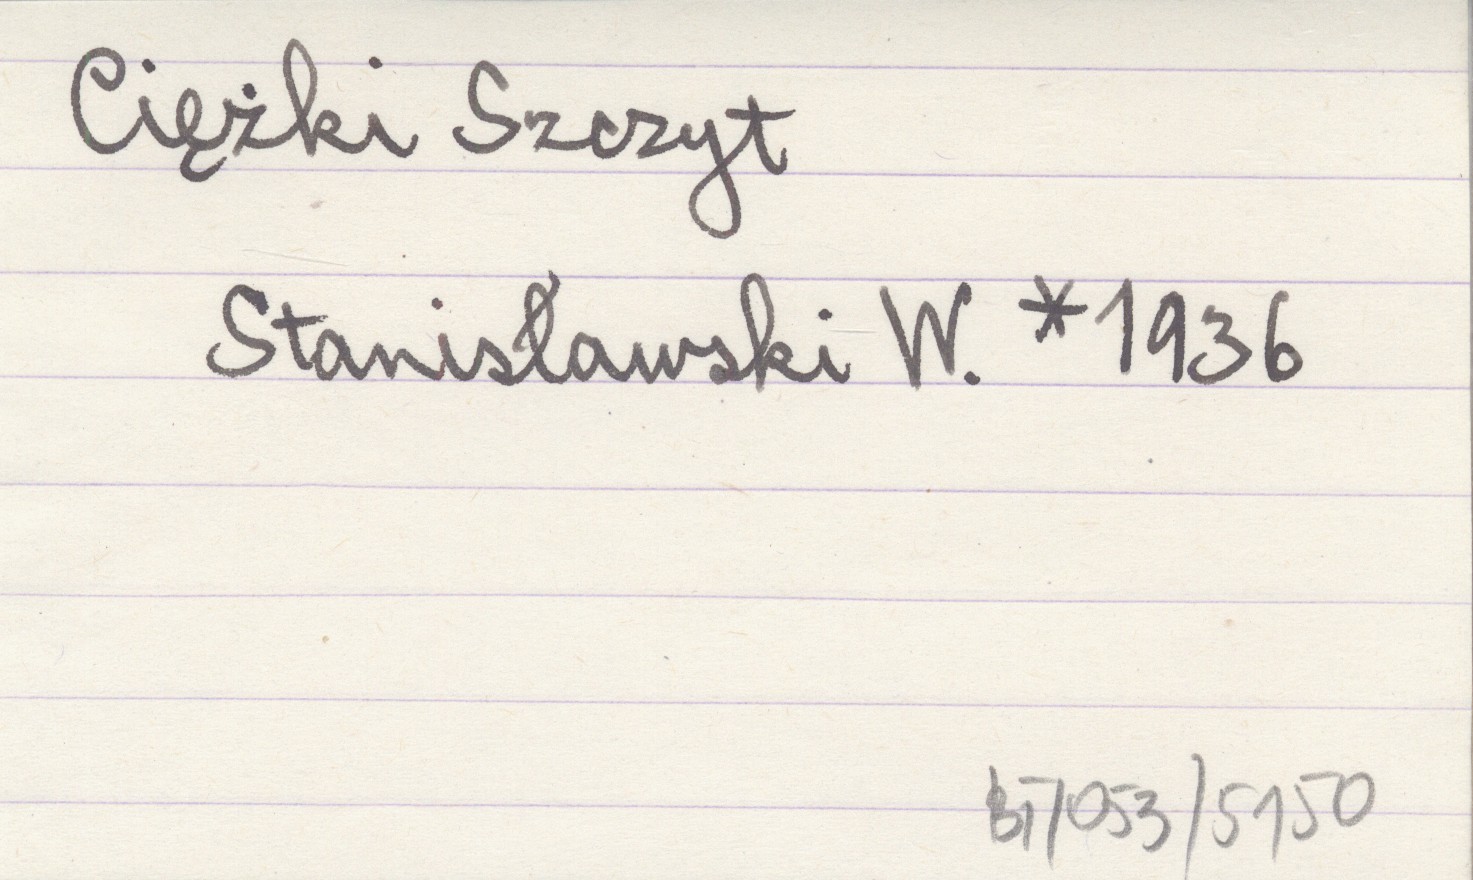 Ciężki Szczyt
Stanisławski W. *1936
BT/053/5150